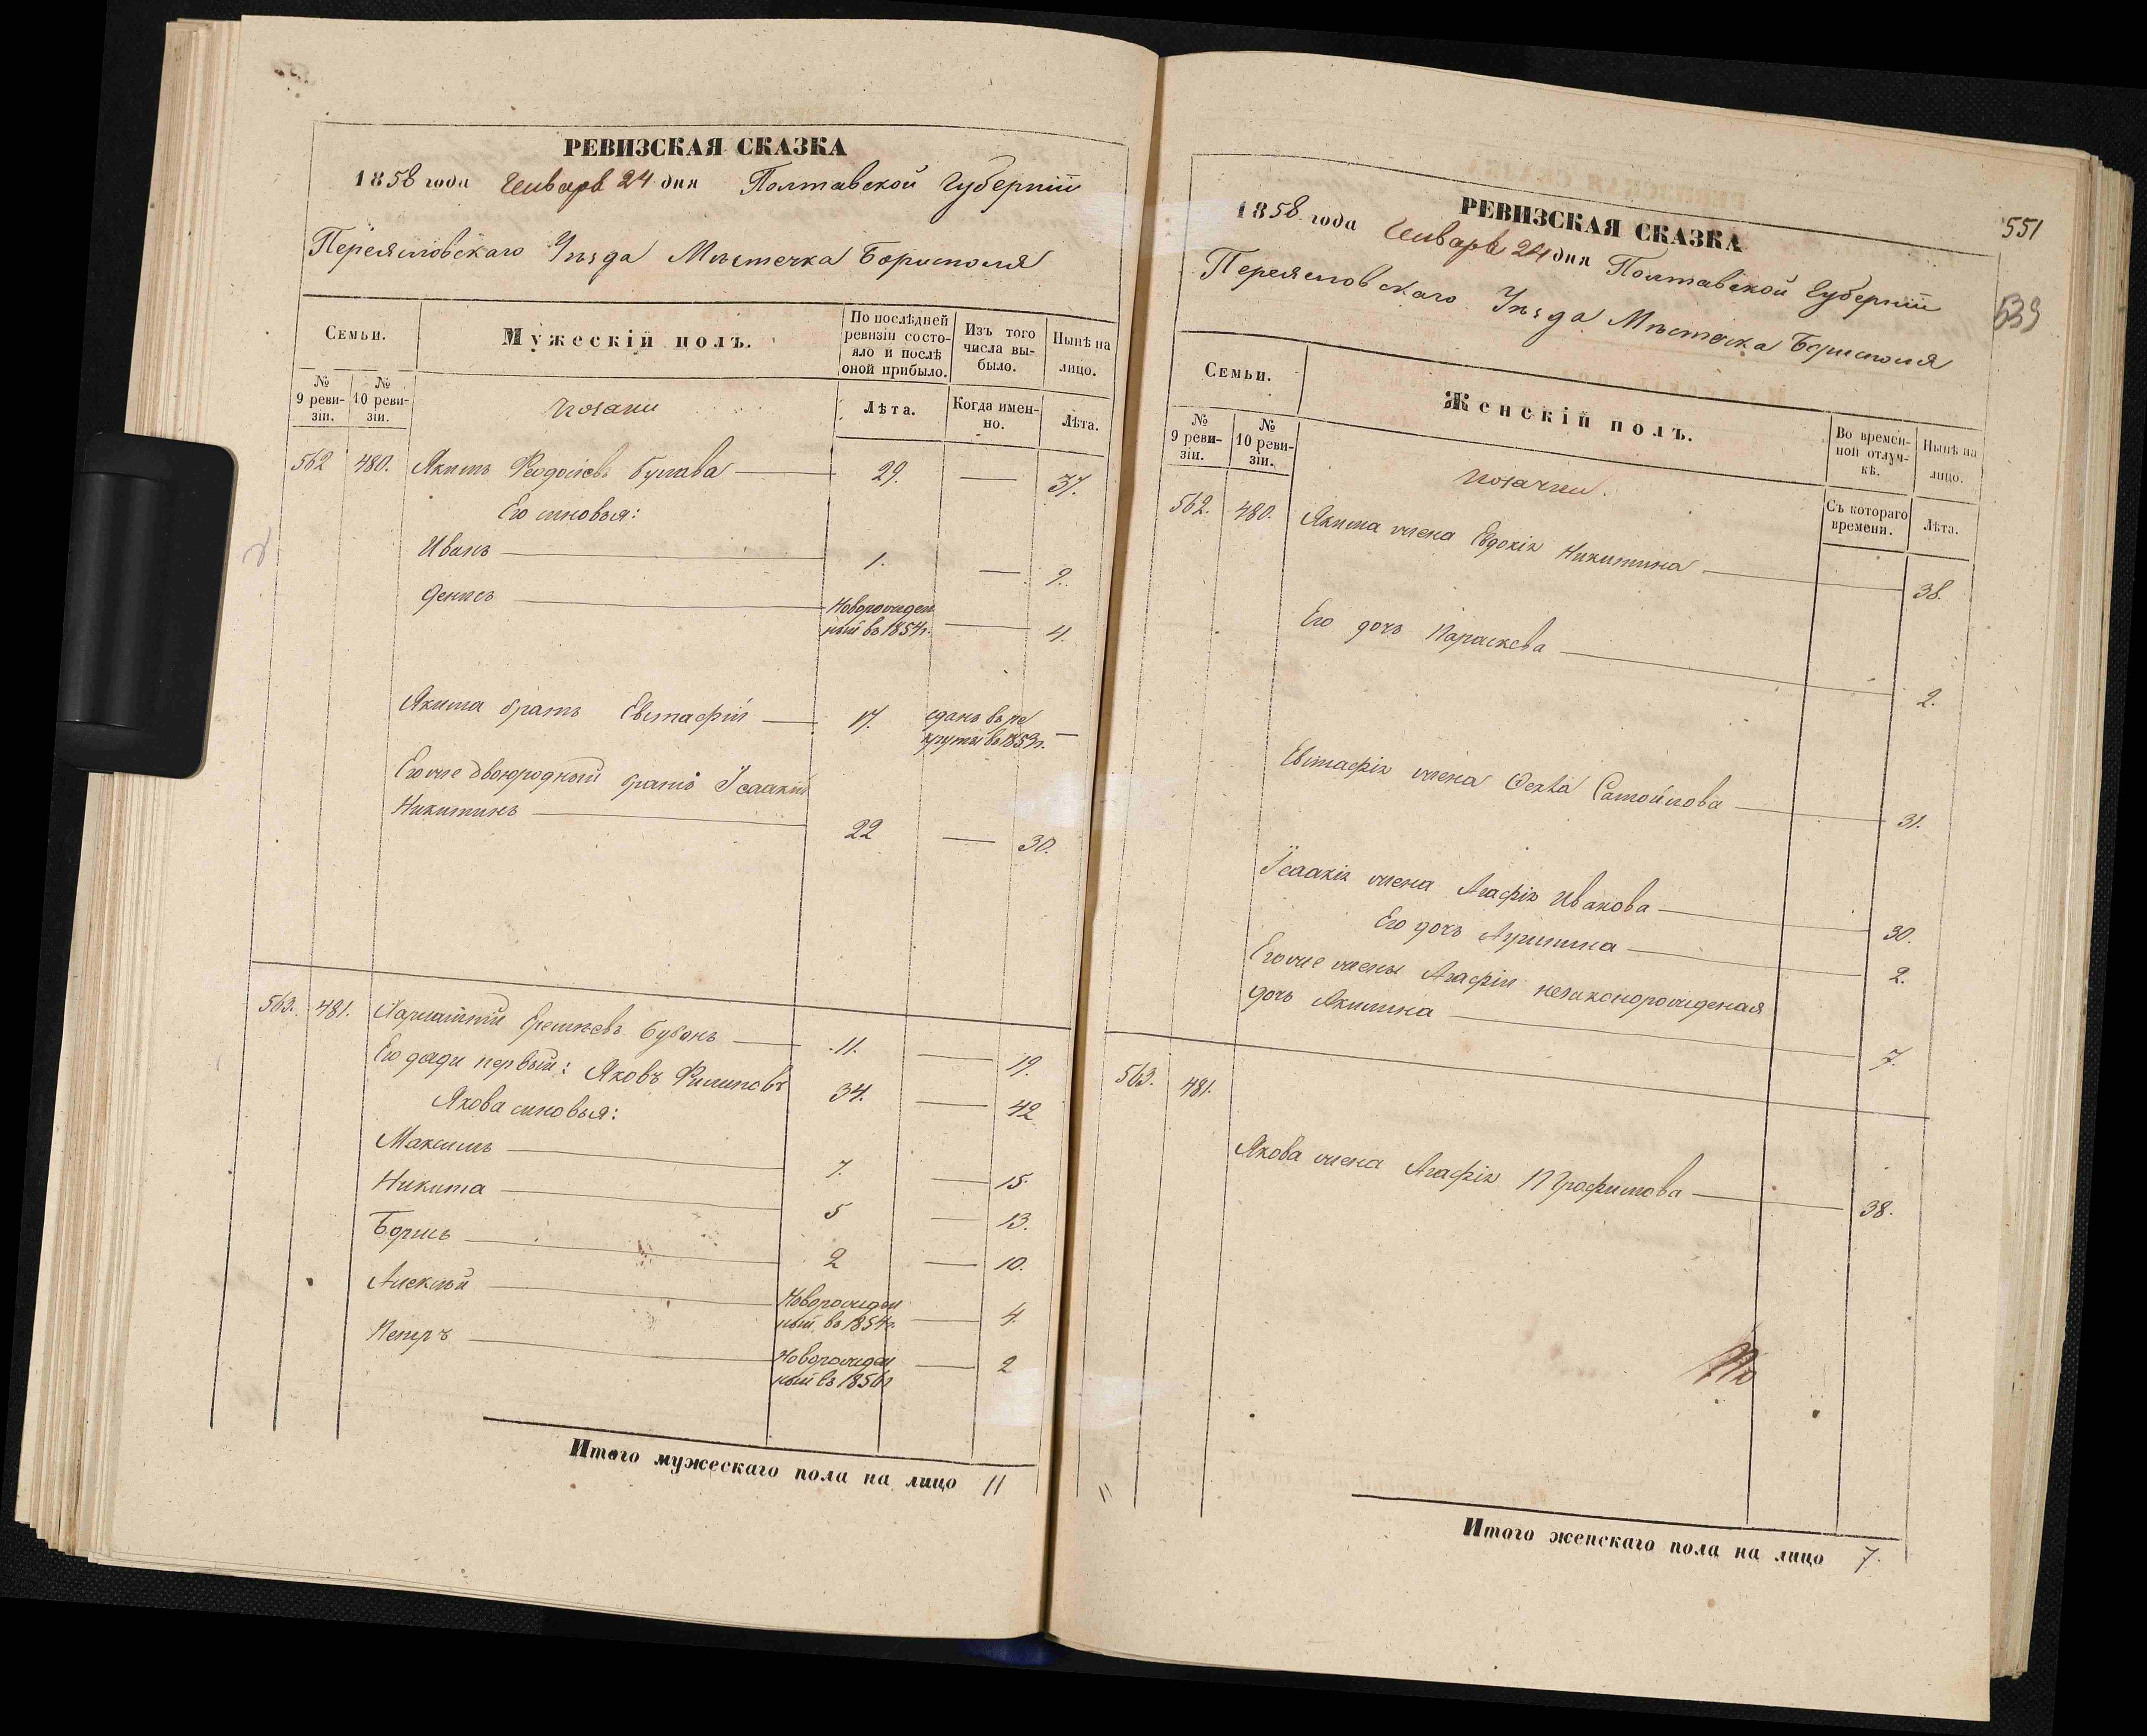 РЕВИЗСКАЯ СКАЗКА
1858 года Генваря 24 дня Полтавской Губерніи
Переяславскаго Уѣзда Мѣстечка Борисполя
Семьи.
Мужескій полъ.
По послѣдней ревизіи состояло и послѣ оной прибыло.
Изъ того числа выбыло.
Нынѣ на лицо.
№ 9 ревизіи.
№ 10 ревизіи.
козаки
Лѣта.
Когда именно.
Лѣта.
562 480. Якимъ Феодосіевъ Булава 29. — 37.
Его сыновья:
Иванъ 1. — 9.
Денисъ Новорожденный въ 1854г. — 4.
Якима братъ Евстафій 17. сданъ въ рекруты въ 1853г. —
Егоже двоюродный братъ Ісаакій
Никитинъ 22 — 30.
563. 481. Харлампій Бубонъ 11. — 19.
Его дяди первый: Яковъ Филиповъ 34. — 42
Якова сыновья:
Максимъ 7. — 15.
Никита 5 — 13.
Борисъ 2 — 10.
Алексѣй Новорожденный въ 1854г. — 4.
Петръ Новорожденный въ 1856г — 2
Итого мужескаго пола на лицо 11
551
539
РЕВИЗСКАЯ СКАЗКА
1858 года Генваря 24 дня Полтавской Губерніи
Переяславскаго Уѣзда Мѣстечка Борисполя
Семьи.
Женскій полъ.
Во временной отлучкѣ.
Нынѣ на лицо.
№ 9 ревизіи.
№ 10 ревизіи.
козачки.
Съ котораго времени.
Лѣта.
562. 480. Якима жена Евдокія Никитина 38.
Его дочь Параскева 2.
Евстафія жена Фекла Самойлова 31.
Ісаакія жена Агафія Иванова 30.
Его дочь Агрипина 2.
Егоже жены Агафіи незаконорожденая
дочь Акилина 7.
563. 481.
Якова жена Агафія Трофимова 38.
Итого женскаго пола на лицо 7.